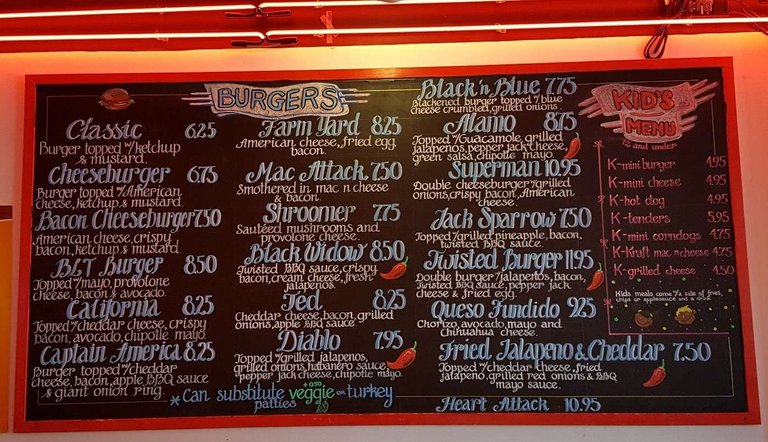 BURGERS
Classic 6.25
Burger topped w/ketchup
& mustard.
Cheeseburger 6.75
Burger topped w/American
cheese, ketchup & mustard
Bacon Cheeseburger 7.50
American cheese, crispy
bacon, ketchup & mustard
BLT Burger 8.50
Topped w/mayo, provolone
cheese, bacon & avocado.
California 8.25
Topped w/cheddar cheese, crispy
bacon, avocado, chipotle mayo.
Captain America 8.25
Burger topped w/cheddar
cheese, bacon, apple BBQ sauce
& giant onion ring.
Farm Yard 8.25
American cheese, fried egg,
bacon.
Mac Attack 7.50
Smothered in mac n cheese
& bacon.
Shroomer 7.75
Sautéed mushrooms and
provolone cheese.
Black Widow 8.50
Twisted BBQ sauce, crispy
bacon, cream cheese, fresh
jalapenos.
Ted 8.25
Cheddar cheese, bacon, grilled
onions, apple BBQ sauce
Diablo 7.95
Topped w/grilled jalapenos,
grilled onions, habanero sauce
pepper jack cheese, chipotle mayo.
*Can substitute veggie or turkey
patties
Black 'n Blue 7.75
Blackened burger topped w/blue
cheese crumbled, grilled onions.
Alamo 8.75
Topped w/Guacamole, grilled
jalapenos, pepper jack cheese,
green salsa, chipotle mayo.
Superman 10.95
Double cheeseburger w/grilled
onions, crispy bacon, American
cheese.
Jack Sparrow 7.50
Topped w/grilled pineapple, bacon,
twisted BBQ sauce.
Twisted Burger 11.95
Double burger w/jalapenos, bacon,
Twisted BBQ sauce, pepper jack
cheese & fried egg.
Queso Fundido 9.25
Chorizo, avocado, mayo and
Chihuahua cheese.
Fried Jalapeno & Cheddar 7.50
Topped w/cheddar cheese, fried
jalapeno, grilled red onions & BBQ
mayo sauce.
Heart Attack 10.95
KID'S
MENU
12 and under
K-mini burger 4.95
K-mini cheese 4.95
K-hot dog 4.95
K-tenders 5.95
K-mini corndogs 4.75
K-Kraft mac n cheese 4.75
K-grilled cheese 4.50
Kids meals come w/a side of fries,
chips or applesauce and a drink